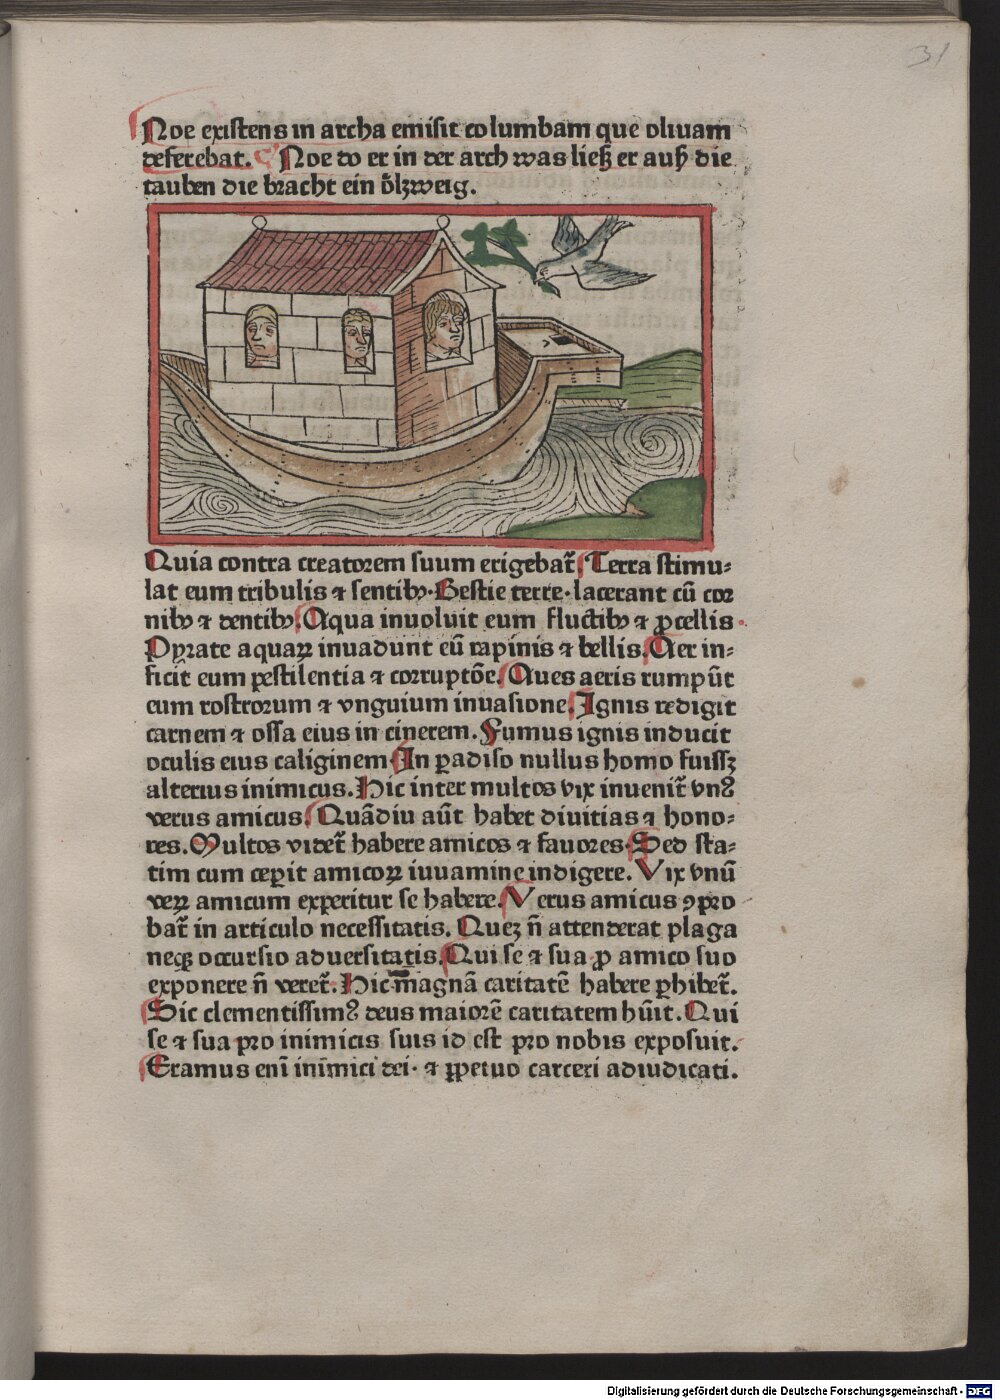 31
Noe existens in archa emisit columbam que olivam
deferebat. Noe do er in der arch was ließ er auß die
tauben die bracht ein ölzweig.
Quia contra creatorem suum erigebat᷑. Terra stimu⸗
lat eum tribulis ⁊ sentibꝰ. Bestie terre lacerant cū cor
nibꝰ ⁊ dentibꝰ. Aqua inuoluit eum fluctibꝰ ⁊ ꝓcellis
Pyrate aquaꝝ inuadunt eū rapinis ⁊ bellis. Aer in⸗
ficit eum pestilentia ⁊ corruptōe. Aues aeris rumpūt
eum rostrorum ⁊ vnguium inuasione. Ignis redigit
carnem ⁊ ossa eius in cinerem. Fumus ignis inducit
oculis eius caliginem. In ꝑadiso nullus homo fuissꝫ
alterius inimicus. Hic inter multos vix invenit᷑ vnꝰ
verus amicus. Quādiu aūt habet divitias ⁊ hono⸗
res. Multos videt᷑ habere amicos ⁊ fauores. Sed sta⸗
tim cum ceꝑit amicoꝝ iuvamine indigere. Vix vnū
veꝝ amicum experitur se habere. Verus amicus ꝯpro
bat᷑ in articulo necessitatis. Quez n̄ attenderat plaga
neqꝫ occursio adversitatis. Qui se ⁊ sua ꝓ amico suo
exponere n̄ veret᷑. Hic magnā caritatē habere ꝑhibet᷑.
Sic clementissimꝰ deus maiorē caritatem hūit. Qui
se ⁊ sua pro inimicis suis id est pro nobis exposuit.
Eramus enī inimici dei ⁊ ꝑpetuo carceri adiudicati.
Digitalisierung gefördert durch die Deutsche Forschungsgemeinschaft - DFG